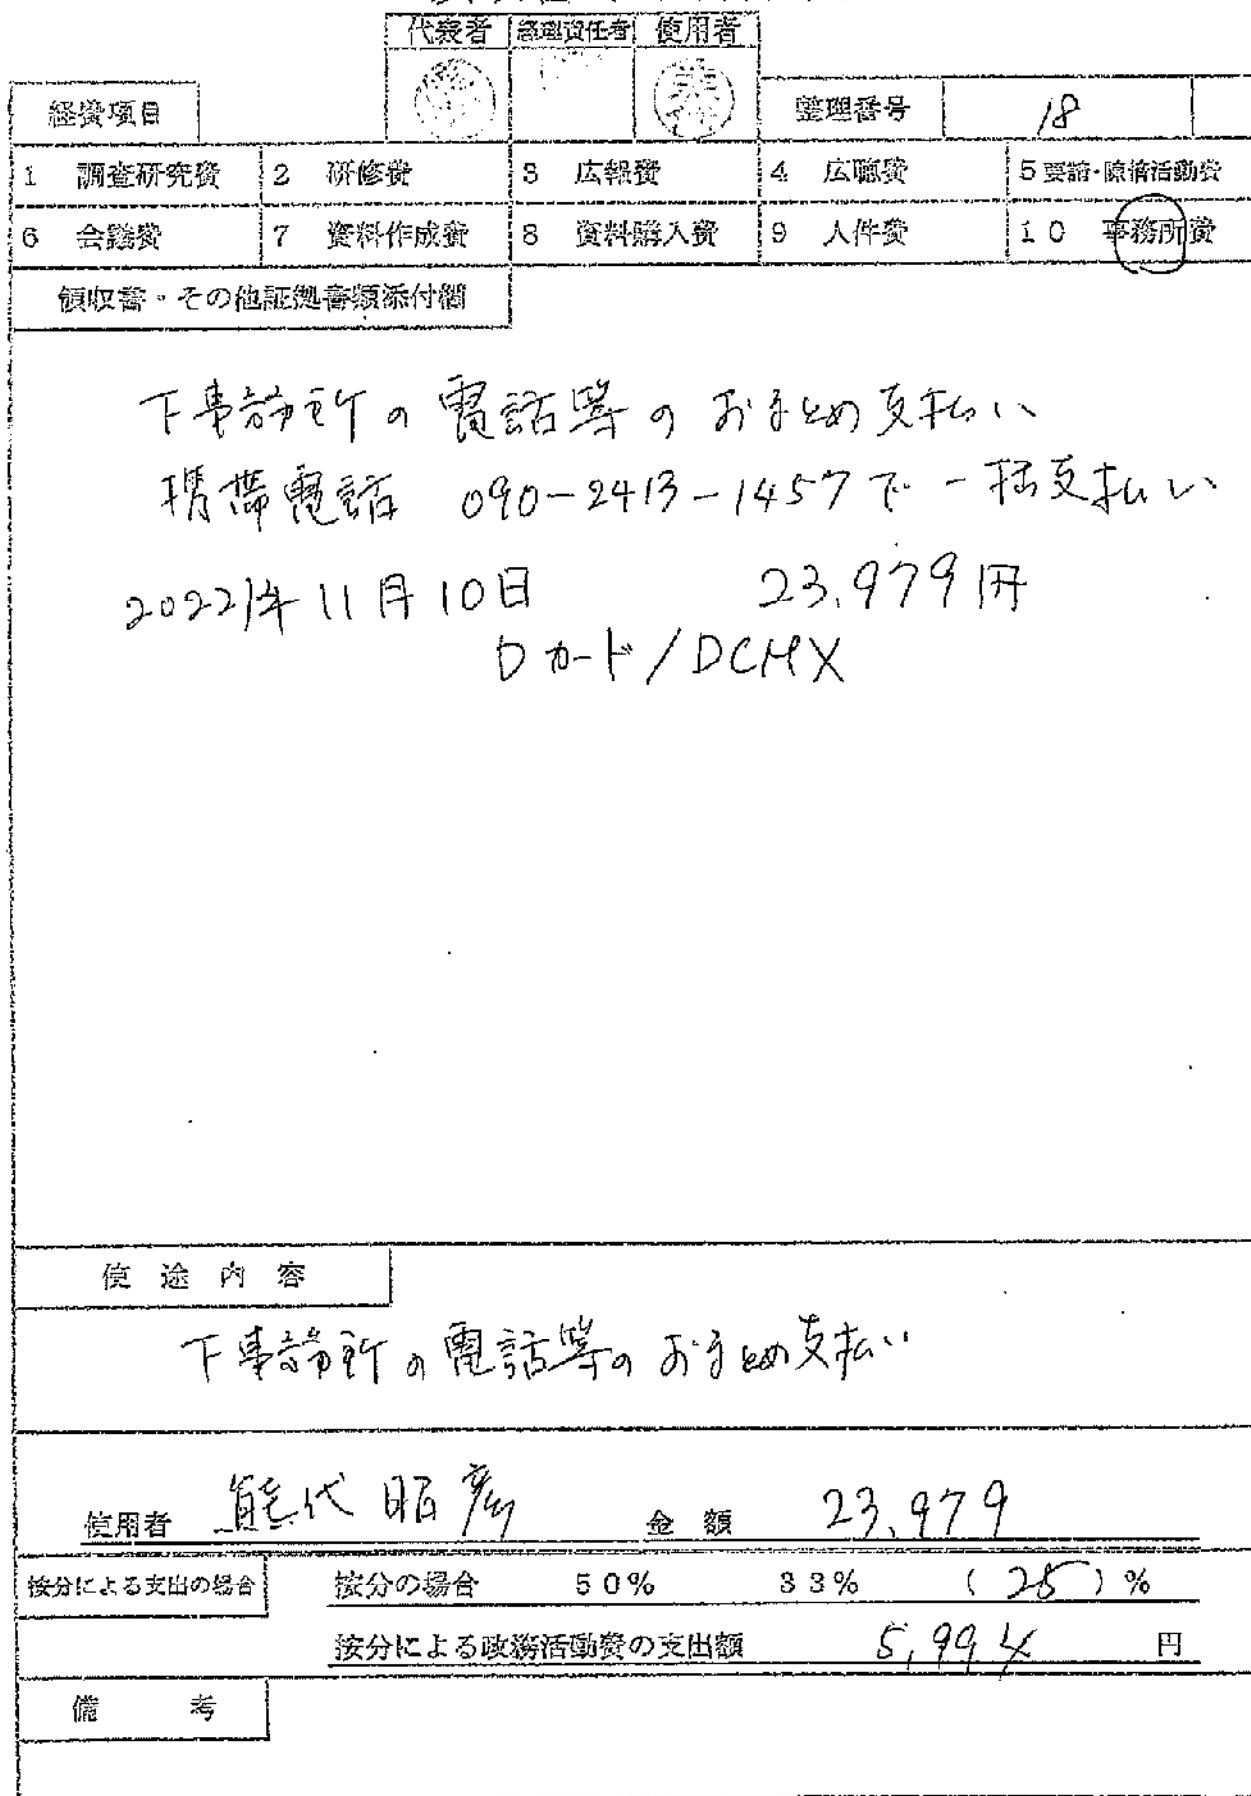 代表者 経理責任者 使用者
経費項目 整理番号 18
1 調査研究費 2 研修費 3 広報費 4 広聴費 5 要請・陳情活動費
6 会議費 7 資料作成費 8 資料購入費 9 人件費 10 事務所費
領収書・その他証拠書類添付欄
下事務所の電話等のおまとめ支払い
携帯電話 090-2413-1457で一括支払い
2022年11月10日 23,979円
Dカード/DCMX
使途内容
下事務所の電話等のおまとめ支払い
使用者 能代昭彦 金額 23,979
按分による支出の場合 按分の場合 50% 33% (25)%
按分による政務活動費の支出額 5,994 円
備考